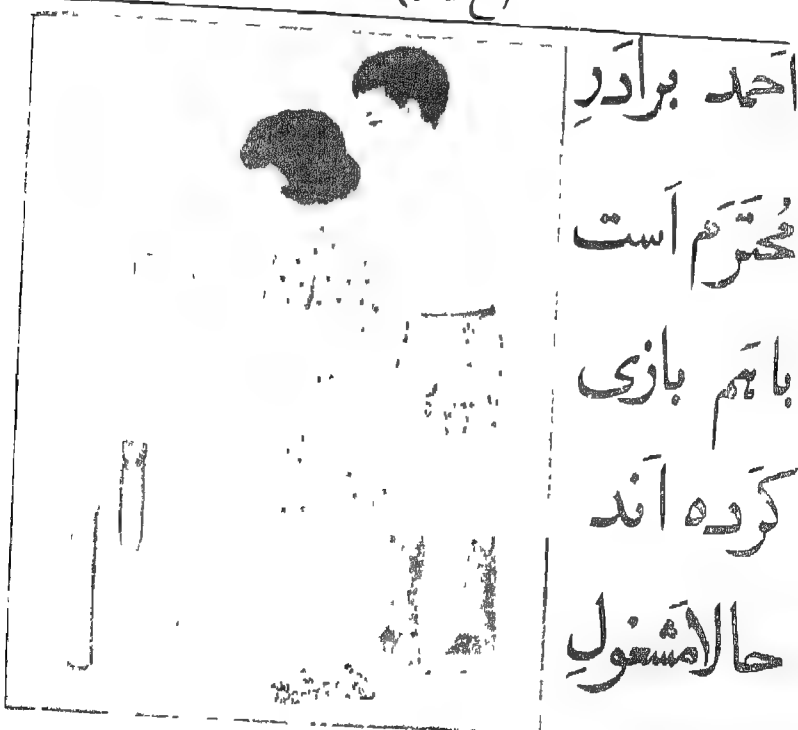 اَحمد برادَرِ
مُحتَرَم اَست
باهَم بازی
کَرده اَند
حالا مَشغولِ